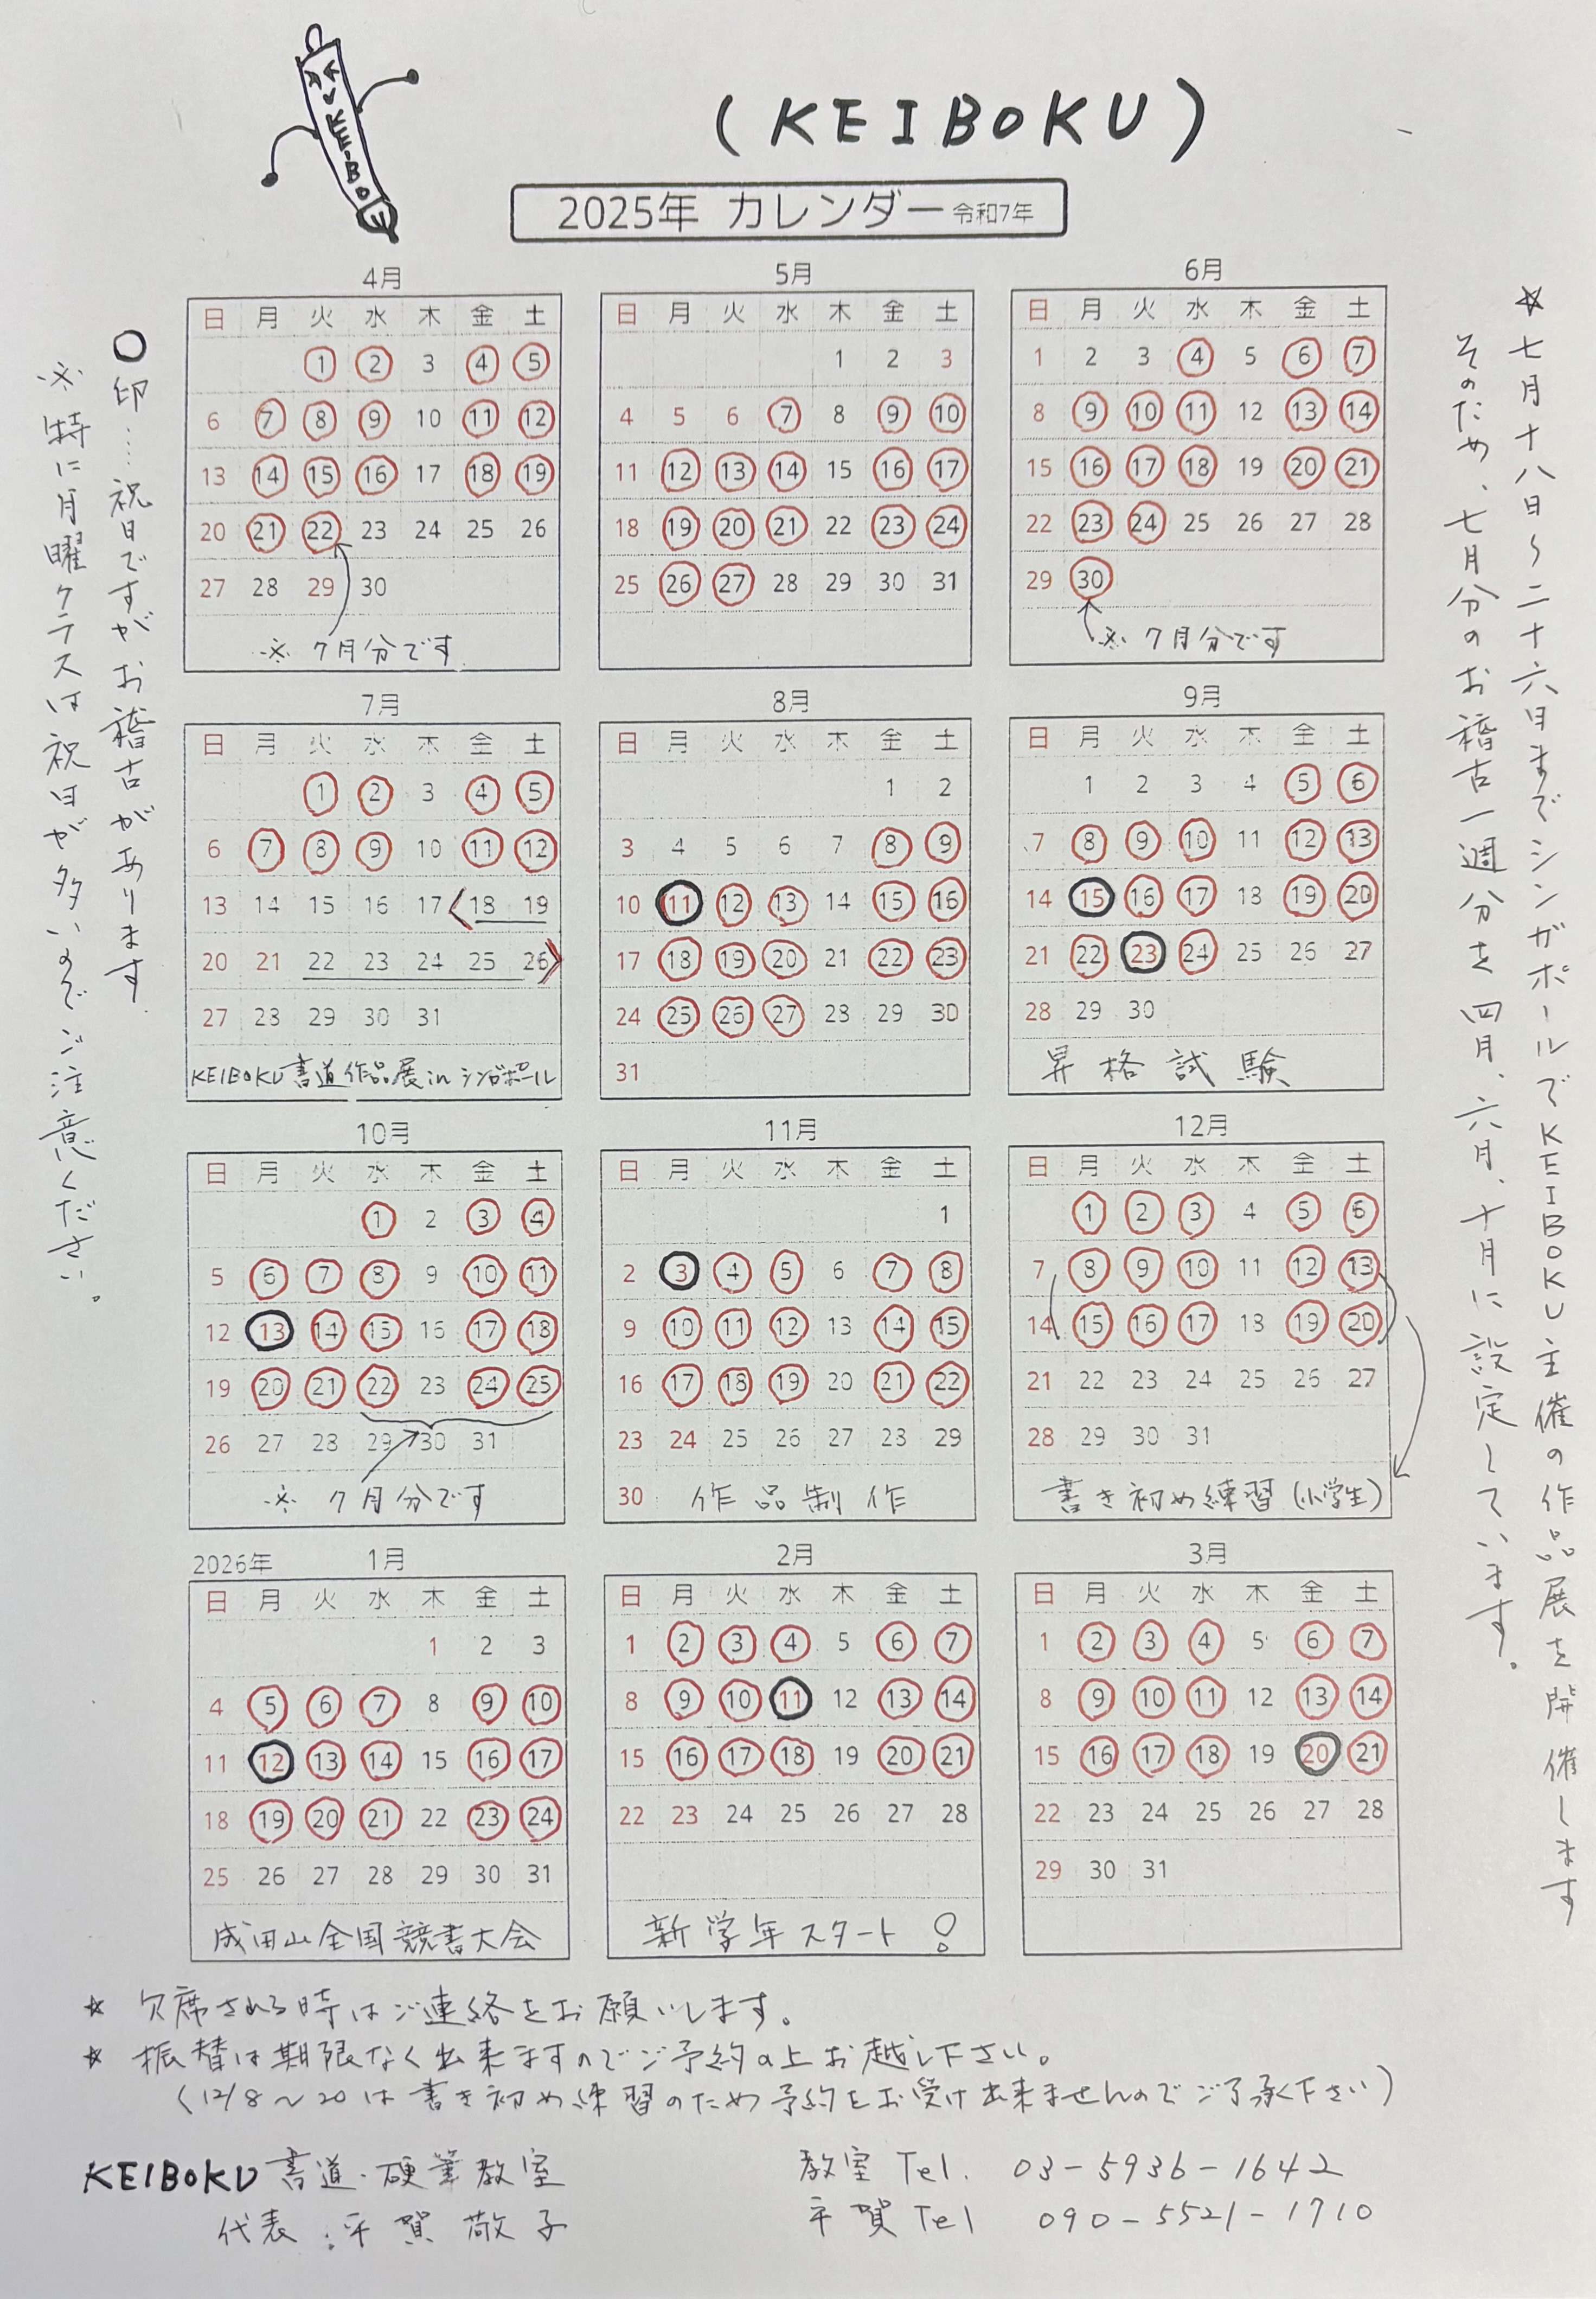 ガンバレ KEIBO
(KEIBOKU)
2025年 カレンダー 令和7年
★七月十八日～二十六日までシンガポールでKEIBOKU主催の作品展を開催します
そのため、七月分のお稽古一週分を四月、六月、十月に設定しています。
○印……祝日ですがお稽古があります
※特に月曜クラスは祝日が多いのでご注意ください。
4月
日 月 火 水 木 金 土
1 2 3 4 5
6 7 8 9 10 11 12
13 14 15 16 17 18 19
20 21 22 23 24 25 26
27 28 29 30
※7月分です
5月
日 月 火 水 木 金 土
1 2 3
4 5 6 7 8 9 10
11 12 13 14 15 16 17
18 19 20 21 22 23 24
25 26 27 28 29 30 31
6月
日 月 火 水 木 金 土
1 2 3 4 5 6 7
8 9 10 11 12 13 14
15 16 17 18 19 20 21
22 23 24 25 26 27 28
29 30
※7月分です
7月
日 月 火 水 木 金 土
1 2 3 4 5
6 7 8 9 10 11 12
13 14 15 16 17 18 19
20 21 22 23 24 25 26
27 28 29 30 31
KEIBOKU書道作品展inシンガポール
8月
日 月 火 水 木 金 土
1 2
3 4 5 6 7 8 9
10 11 12 13 14 15 16
17 18 19 20 21 22 23
24 25 26 27 28 29 30
31
9月
日 月 火 水 木 金 土
1 2 3 4 5 6
7 8 9 10 11 12 13
14 15 16 17 18 19 20
21 22 23 24 25 26 27
28 29 30
昇格試験
10月
日 月 火 水 木 金 土
1 2 3 4
5 6 7 8 9 10 11
12 13 14 15 16 17 18
19 20 21 22 23 24 25
26 27 28 29 30 31
※7月分です
11月
日 月 火 水 木 金 土
1
2 3 4 5 6 7 8
9 10 11 12 13 14 15
16 17 18 19 20 21 22
23 24 25 26 27 28 29
30 作品制作
12月
日 月 火 水 木 金 土
1 2 3 4 5 6
7 8 9 10 11 12 13
14 15 16 17 18 19 20
21 22 23 24 25 26 27
28 29 30 31
書き初め練習(小学生)
2026年 1月
日 月 火 水 木 金 土
1 2 3
4 5 6 7 8 9 10
11 12 13 14 15 16 17
18 19 20 21 22 23 24
25 26 27 28 29 30 31
成田山全国競書大会
2月
日 月 火 水 木 金 土
1 2 3 4 5 6 7
8 9 10 11 12 13 14
15 16 17 18 19 20 21
22 23 24 25 26 27 28
新学年スタート!
3月
日 月 火 水 木 金 土
1 2 3 4 5 6 7
8 9 10 11 12 13 14
15 16 17 18 19 20 21
22 23 24 25 26 27 28
29 30 31
★ 欠席される時はご連絡をお願いします。
★ 振替は期限なく出来ますのでご予約の上お越し下さい。
(12/8～20は書き初め練習のため予約をお受け出来ませんのでご了承下さい)
KEIBOKU書道・硬筆教室
代表:平賀敬子
教室Tel. 03-5936-1642
平賀Tel 090-5521-1710